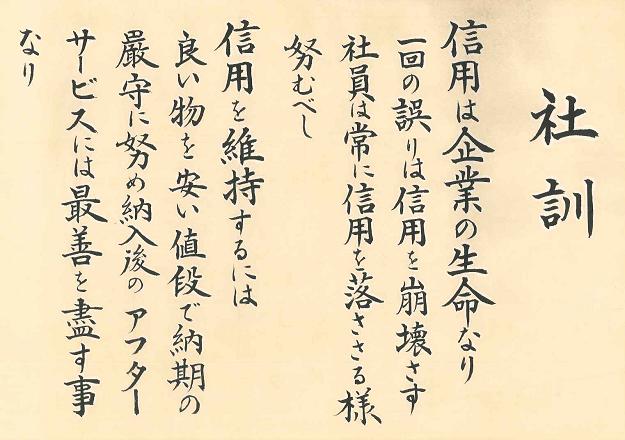 社訓
信用は企業の生命なり
一回の誤りは信用を崩壊さす
社員は常に信用を落さゝる様
努むべし
信用を維持するには
良い物を安い値段で納期の
嚴守に努め納入後のアフター
サービスには最善を盡す事
なり